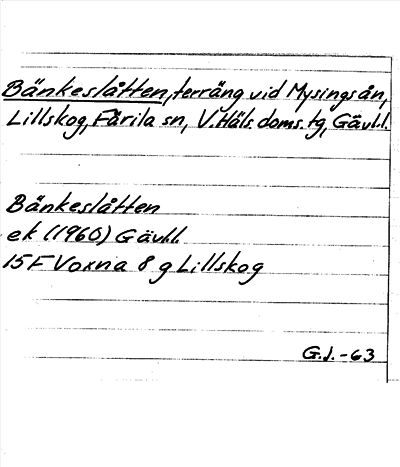 Bänkeslåtten, terräng vid Mysingsån,
Lillskog, Fårila sn, V. Häls. doms. tg, Gävl.l.
Bänkeslåtten
ek (1960) Gävl.l.
15F Voxna 8 g Lillskog
G.J. -63